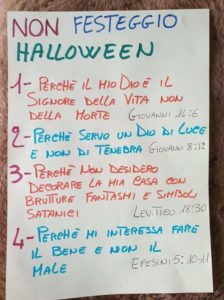 NON FESTEGGIO
HALLOWEEN
1- PERCHÈ IL MIO DIO È IL
SIGNORE DELLA VITA NON
DELLA MORTE GIOVANNI 14:6
2- PERCHÈ SERVO UN DIO DI LUCE
E NON DI TENEBRA GIOVANNI 8:12
3- PERCHÈ NON DESIDERO
DECORARE LA MIA CASA CON
BRUTTURE FANTASMI E SIMBOLI
SATANICI LEVITICO 18:30
4- PERCHÈ MI INTERESSA FARE
IL BENE E NON IL
MALE EFESINI 5:10-11